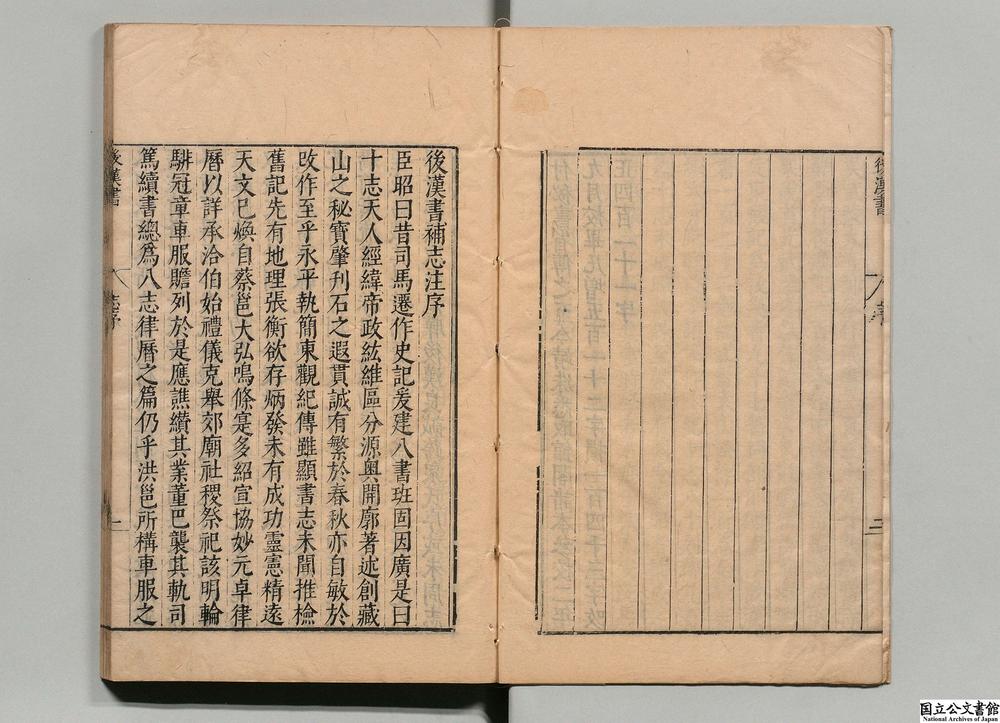 後漢書
後漢書補志注序
臣昭曰昔司馬遷作史記爰建八書班固因廣是曰
十志天人經緯帝政紘維區分源奧開廓著述創藏
山之秘寶肇刊石之遐貫誠有繁於春秋亦自敏於
改作至乎永平執簡東觀紀傳雖顯書志未聞推檢
舊記先有地理張衡欲存炳發未有成功靈憲精遠
天文已煥自蔡邕大弘鳴條寔多紹宣協妙元卓律
曆以詳承洽伯始禮儀克舉郊廟社稷祭祀該明輪
騑冠章車服贍列於是應譙纘其業董巴襲其軌司
馬續書總爲八志律曆之篇仍乎洪邕所構車服之
後漢書
志序
国立公文書館
National Archives of Japan